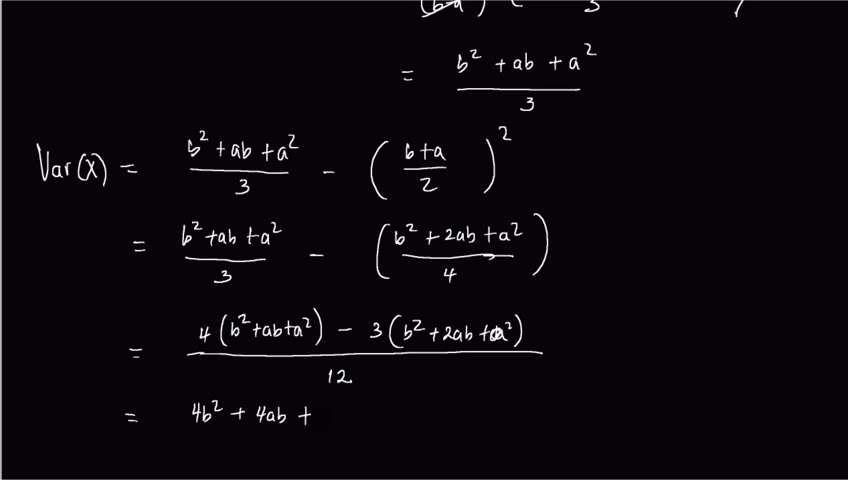 = b² + ab + a² / 3
Var(X) = b² + ab + a² / 3 - ( b + a / 2 )²
= b² + ab + a² / 3 - ( b² + 2ab + a² / 4 )
= 4 ( b² + ab + a² ) - 3 ( b² + 2ab + a² ) / 12
= 4b² + 4ab +